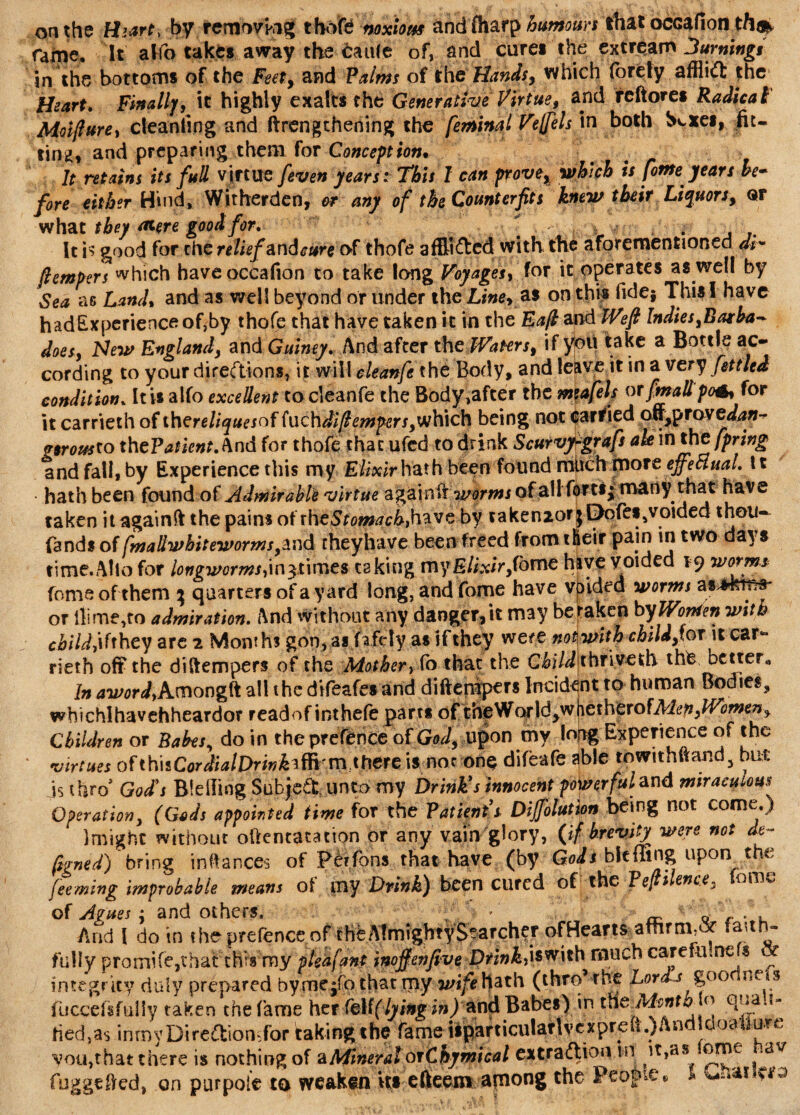 on the Heart, by removing those noxious and sharp humours that occasion the
same. It also takes away the cause of, and cures the extream Burnings
in the bottoms of the Feet, and Palms of the Hands, which sorely afflict the
Heart. Finally, it highly exalts the Generative Virtue, and restores Radical
Moisture, cleansing and strengthening the seminal Vessels in both Sexes, fit-
ting, and preparing them for Conception.
It retains its full virtue seven years: This I can prove, which is some years be-
fore either Hind, Witherden, or any of the Counterfits knew their Liquors, or
what they were good for.
It is good for the relief and cure of those afflicted with the aforementioned di-
stempers which have occasion to take long Voyages, for it operates as well by
Sea as Land, and as well beyond or under the Line, as on this side; This I have
had Experience of, by those that have taken it in the East and West Indies, Barba-
does, New England, and Guiney. And after the Waters, if you take a Bottle ac-
cording to your directions, it will cleanse the Body, and leave it in a very settled
condition. It is also excellent to cleanse the Body, after the measels or small pox, for
it carrieth of the reliques of such distempers, which being not carried off, proved dan-
gerous to the Patient. And for those that used to drink Scurvy-grass ale in the spring
and fall, by Experience this my Elixir hath been found much more effectual. It
hath been found of Admirable virtue against worms of all sorts; many that have
taken it against the pains of the Stomach, have by taken 2 or 3 Doses, voided thou-
sands of small white worms, and they have been freed from their pain in two days
time. Also for long worms, in 3 times taking my Elixir, some have voided 19 worms
some of them 3 quarters of a yard long, and some have voided worms as skins
or slime, to admiration. And without any danger, it may be taken by Women with
child, if they are 2 Months gon, as safely as if they were not with child, for it car-
rieth off the distempers of the Mother, so that the Child thriveth the better.
In a word, Amongst all the diseases and distempers Incident to human Bodies,
which I have hheard or read of in these parts of the World, whether of Men, Women,
Children or Babes, do in the presence of God, upon my long Experience of the
virtues of this Cordial Drink affirm there is not one disease able to withstand, but
is thro' God's Blessing Subject unto my Drink's innocent powerful and miraculous
Operation, (Gods appointed time for the Patient's Dissolution being not come.)
I might without ostentatation or any vain glory, (if brevity were not de-
signed) bring instances of Persons that have (by Gods blessing upon the
seeming improbable means of my Drink) been cured of the Pestilence, some
of Agues; and others.
And I do in the presence of the Almighty Searcher of Hearts affirm, & faith-
fully promise, that this my pleasant inoffensive Drink, is with much carefulness &
integrity duly prepared by me; so that my wife hath (thro' the Lord's goodness
successfully taken the same her self (lying in) and Babes) in the Month (so quali-
fied, as in my Direction, for taking the same is particularly exprest.) And I do assure
you, that there is nothing of a Mineral or Chymical extraction in it, as some hav
suggested, on purpose to weaken its esteem among the People. I